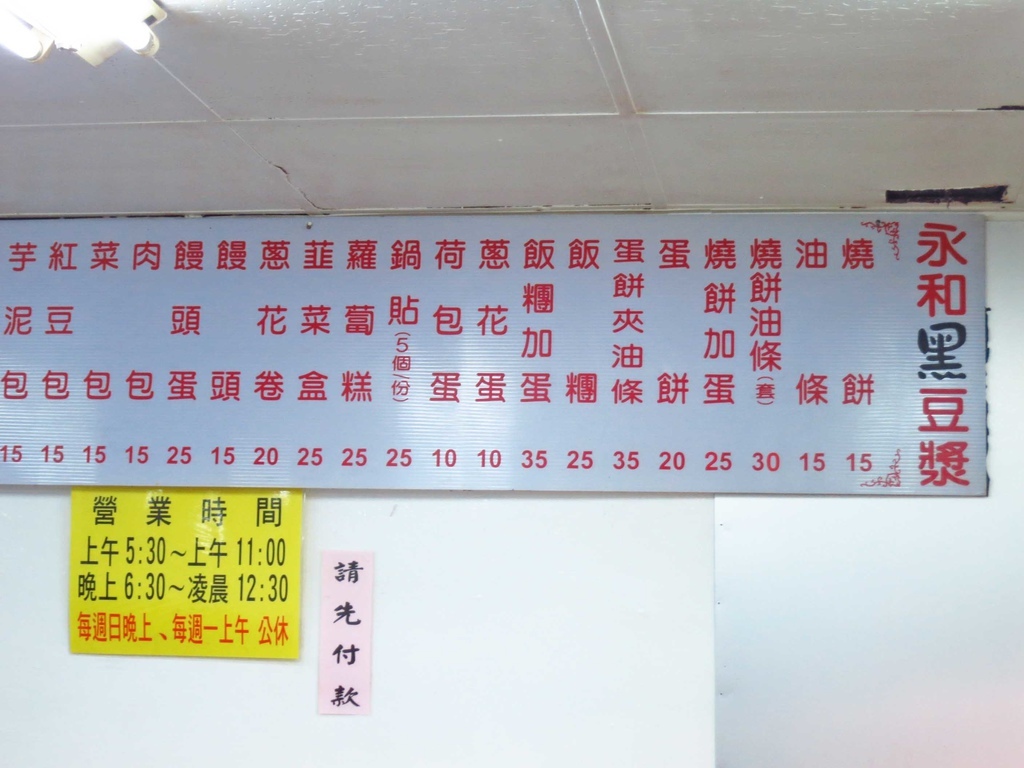 永和黑豆漿
燒餅 15
油條 15
燒餅油條(套) 30
燒餅加蛋 25
蛋餅 20
蛋餅夾油條 35
飯糰 25
飯糰加蛋 35
蔥花蛋 10
荷包蛋 10
鍋貼(5個/份) 25
蘿蔔糕 25
韮菜盒 25
蔥花卷 20
饅頭 15
饅頭蛋 25
肉包 15
菜包 15
紅豆包 15
芋泥包 15
營業時間
上午5:30~上午11:00
晚上6:30~凌晨12:30
每週日晚上、每週一上午 公休
請先付款